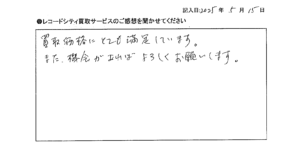 記入日:2025年5月15日
●レコードシティ買取サービスのご感想を聞かせてください
買取価格にとても満足しています。
また、機会が出ればよろしくお願いします。